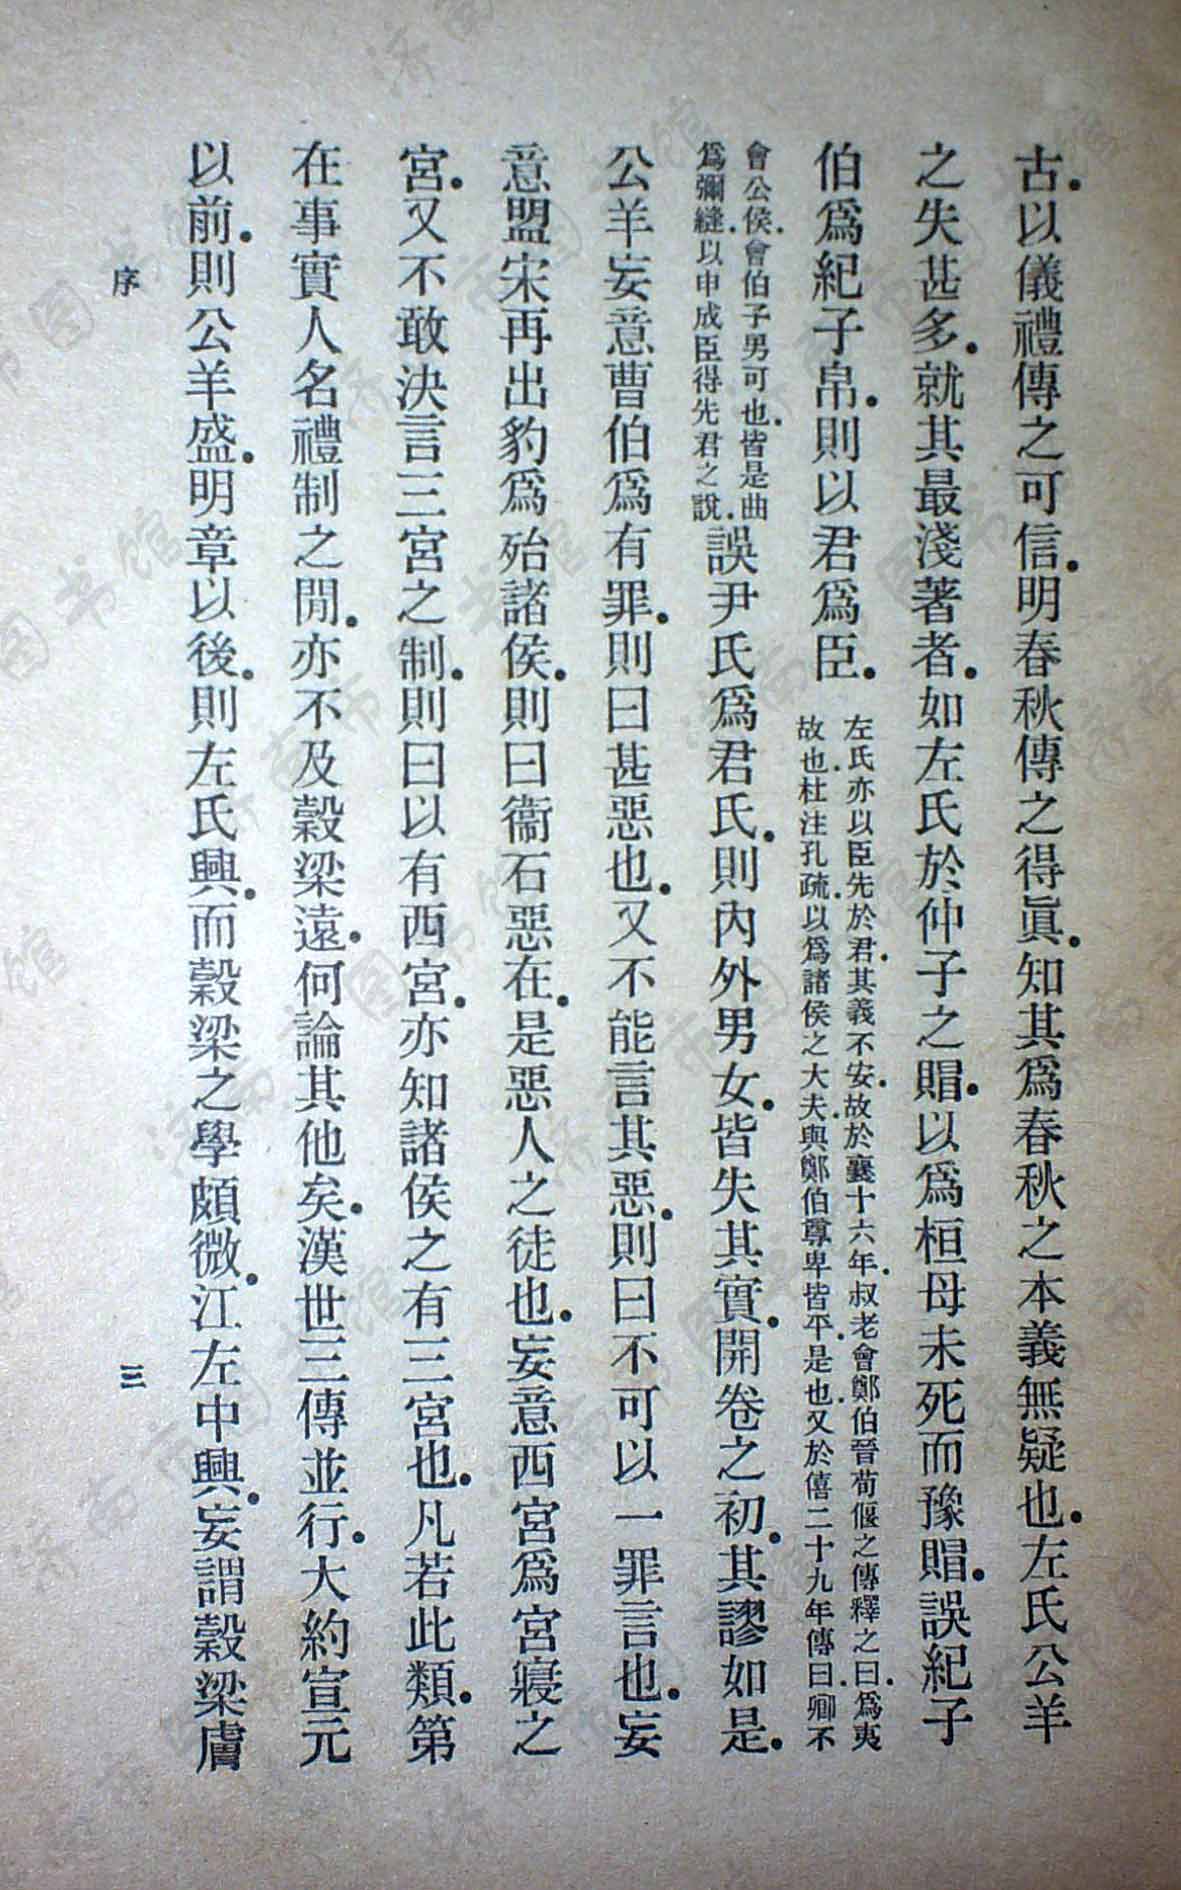 古.以儀禮傳之可信.明春秋傳之得眞.知其爲春秋之本義無疑也.左氏公羊
之失甚多.就其最淺著者.如左氏於仲子之賵.以爲桓母未死而豫賵.誤紀子
伯爲紀子帛.則以君爲臣.左氏亦以臣先於君.其義不安.故於襄十六年.叔老會鄭伯晉荀偃之傳釋之曰.爲夷
故也.杜注孔疏.以爲諸侯之大夫.與鄭伯尊卑皆平.是也.又於僖二十九年傳曰.卿不
會公侯.會伯子男可也.皆是曲
爲彌縫.以申成臣得先君之說.誤尹氏爲君氏.則內外男女.皆失其實.開卷之初.其謬如是.
公羊妄意曹伯爲有罪.則曰甚惡也.又不能言其惡.則曰不可以一罪言也.妄
意盟宋再出豹爲殆諸侯.則曰衞石惡在.是惡人之徒也.妄意西宮爲宮寢之
宮.又不敢決言三宮之制.則曰以有西宮.亦知諸侯之有三宮也.凡若此類.第
在事實人名禮制之閒.亦不及穀梁遠.何論其他矣.漢世三傳並行.大約宣元
以前.則公羊盛.明章以後.則左氏興.而穀梁之學頗微.江左中興.妄謂穀梁膚
序
三
济南市图书馆